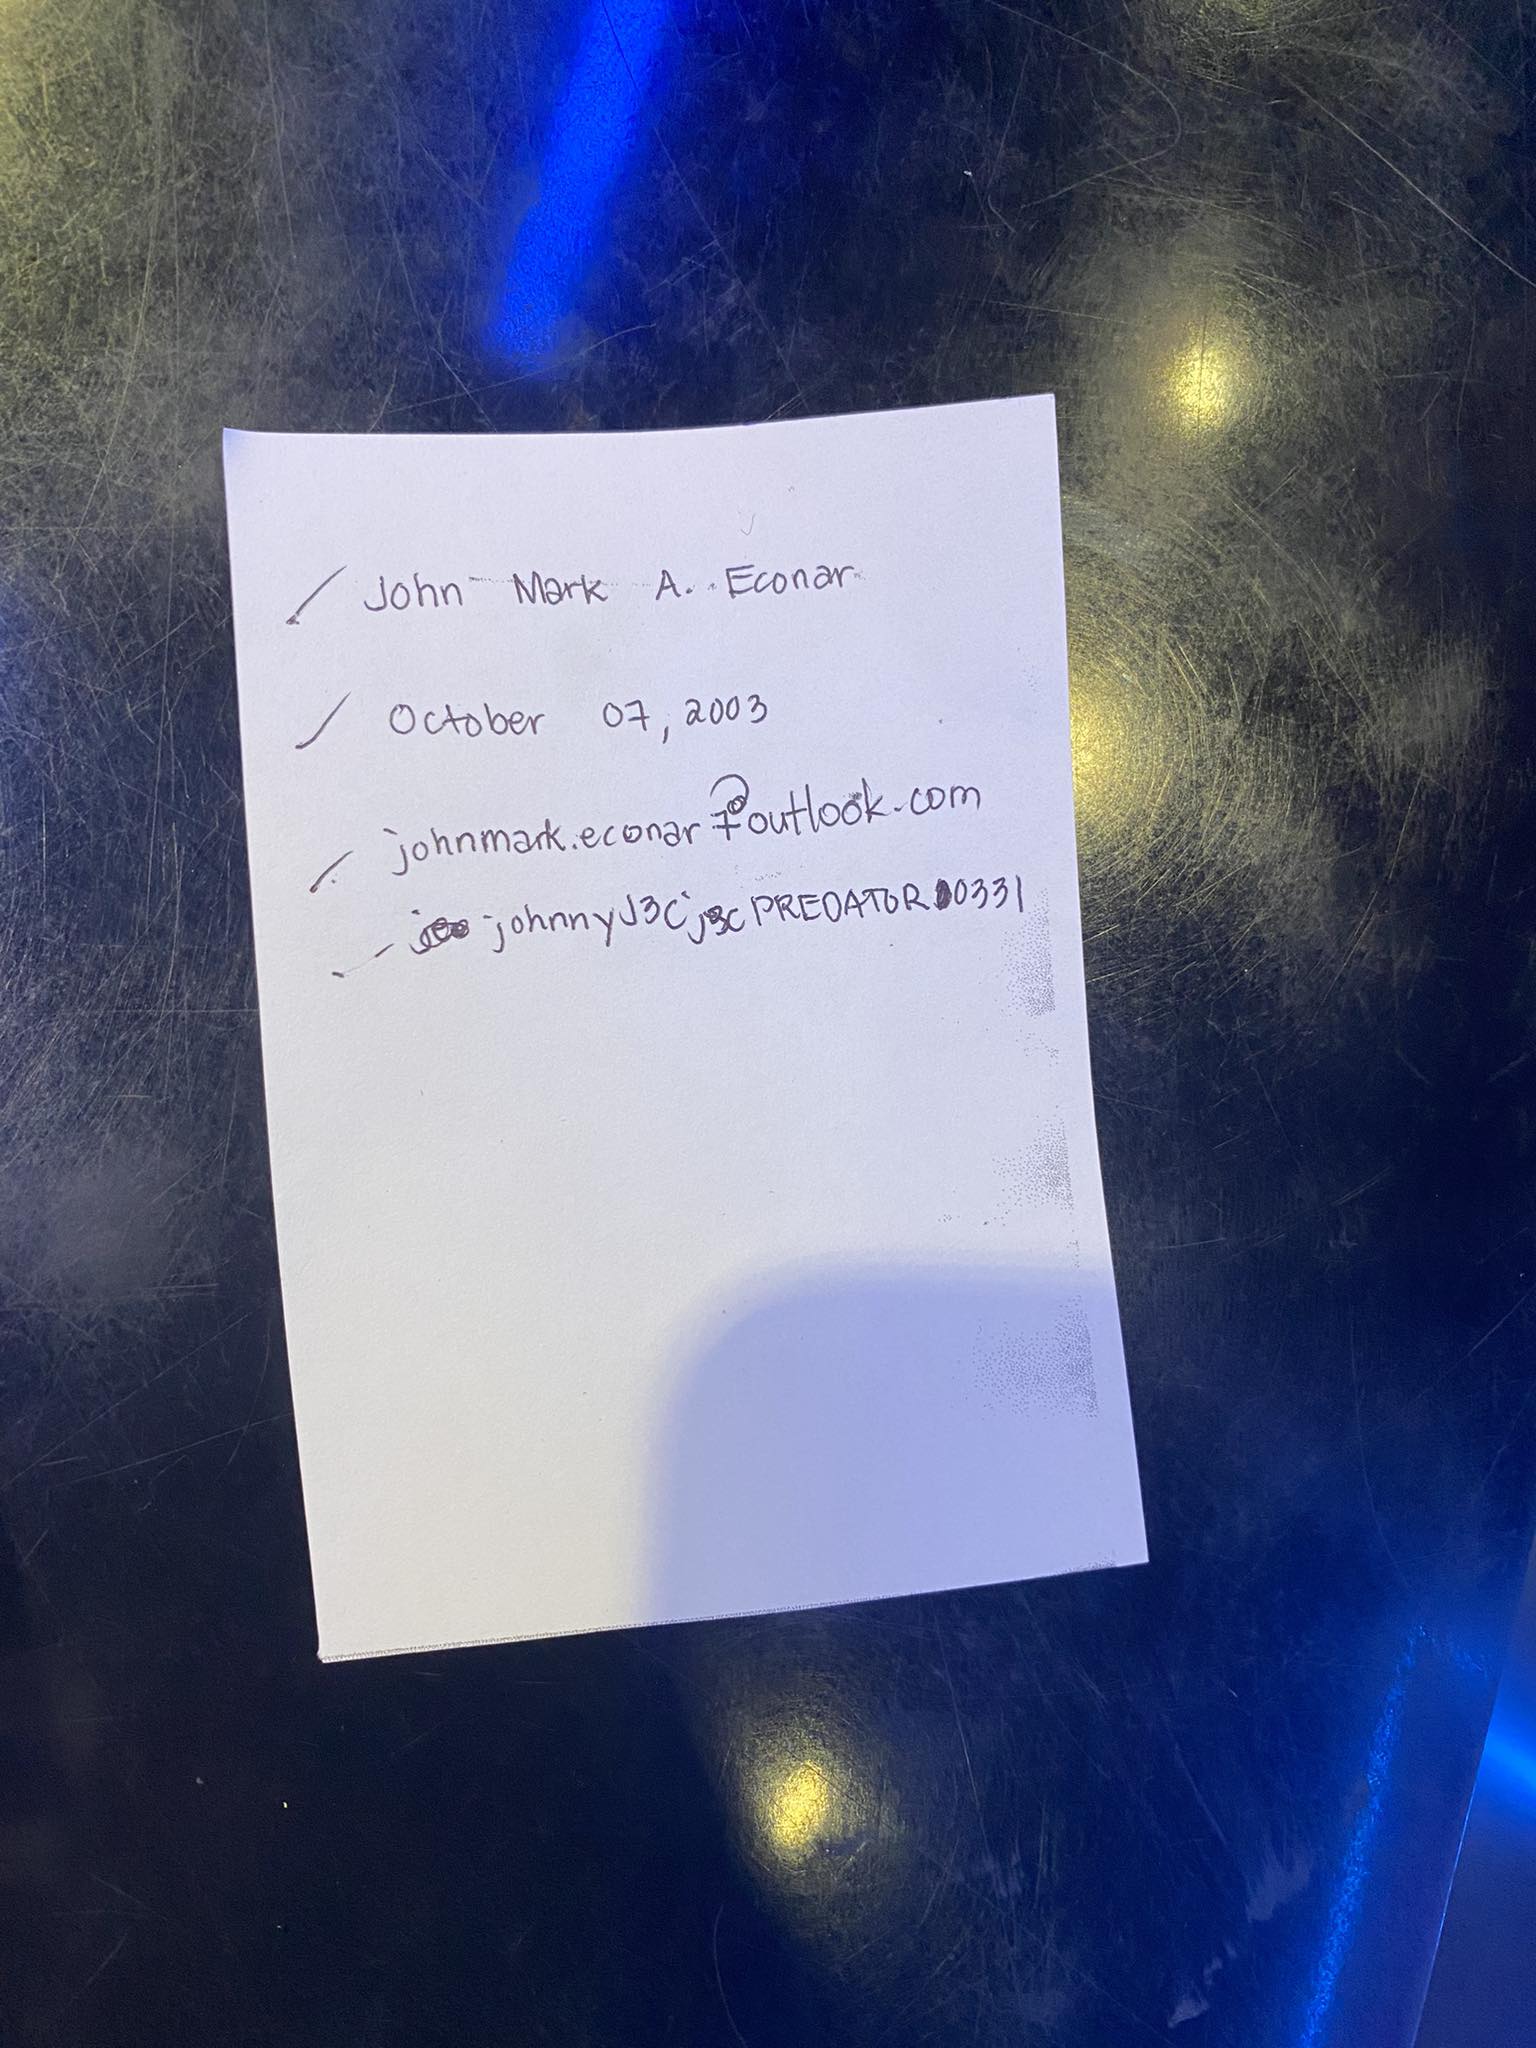 John Mark A. Econar
October 07, 2003
johnmark.econar7@outlook.com
johnnyJ3Cj3cPREDATOR00331